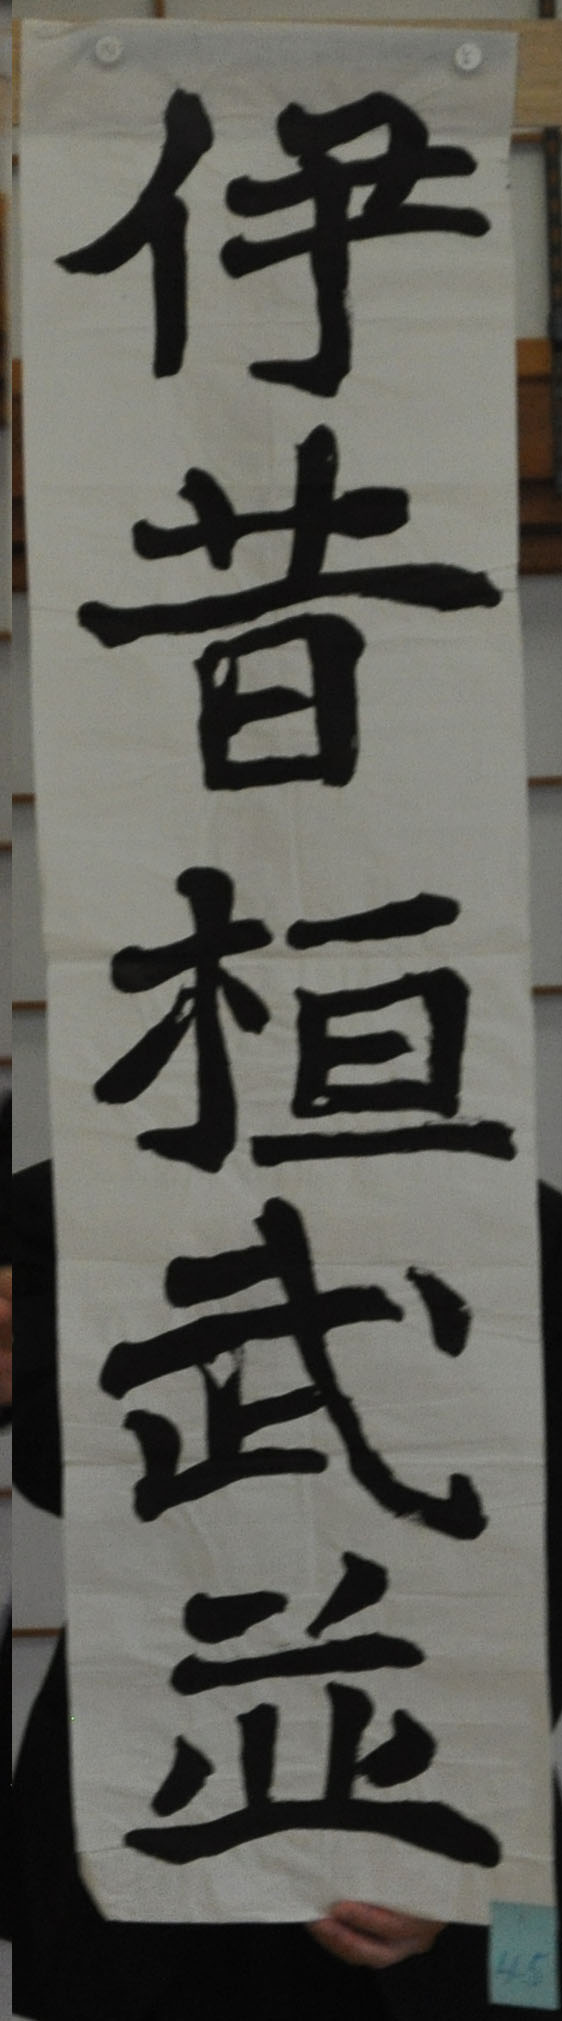 伊昔桓武並
45